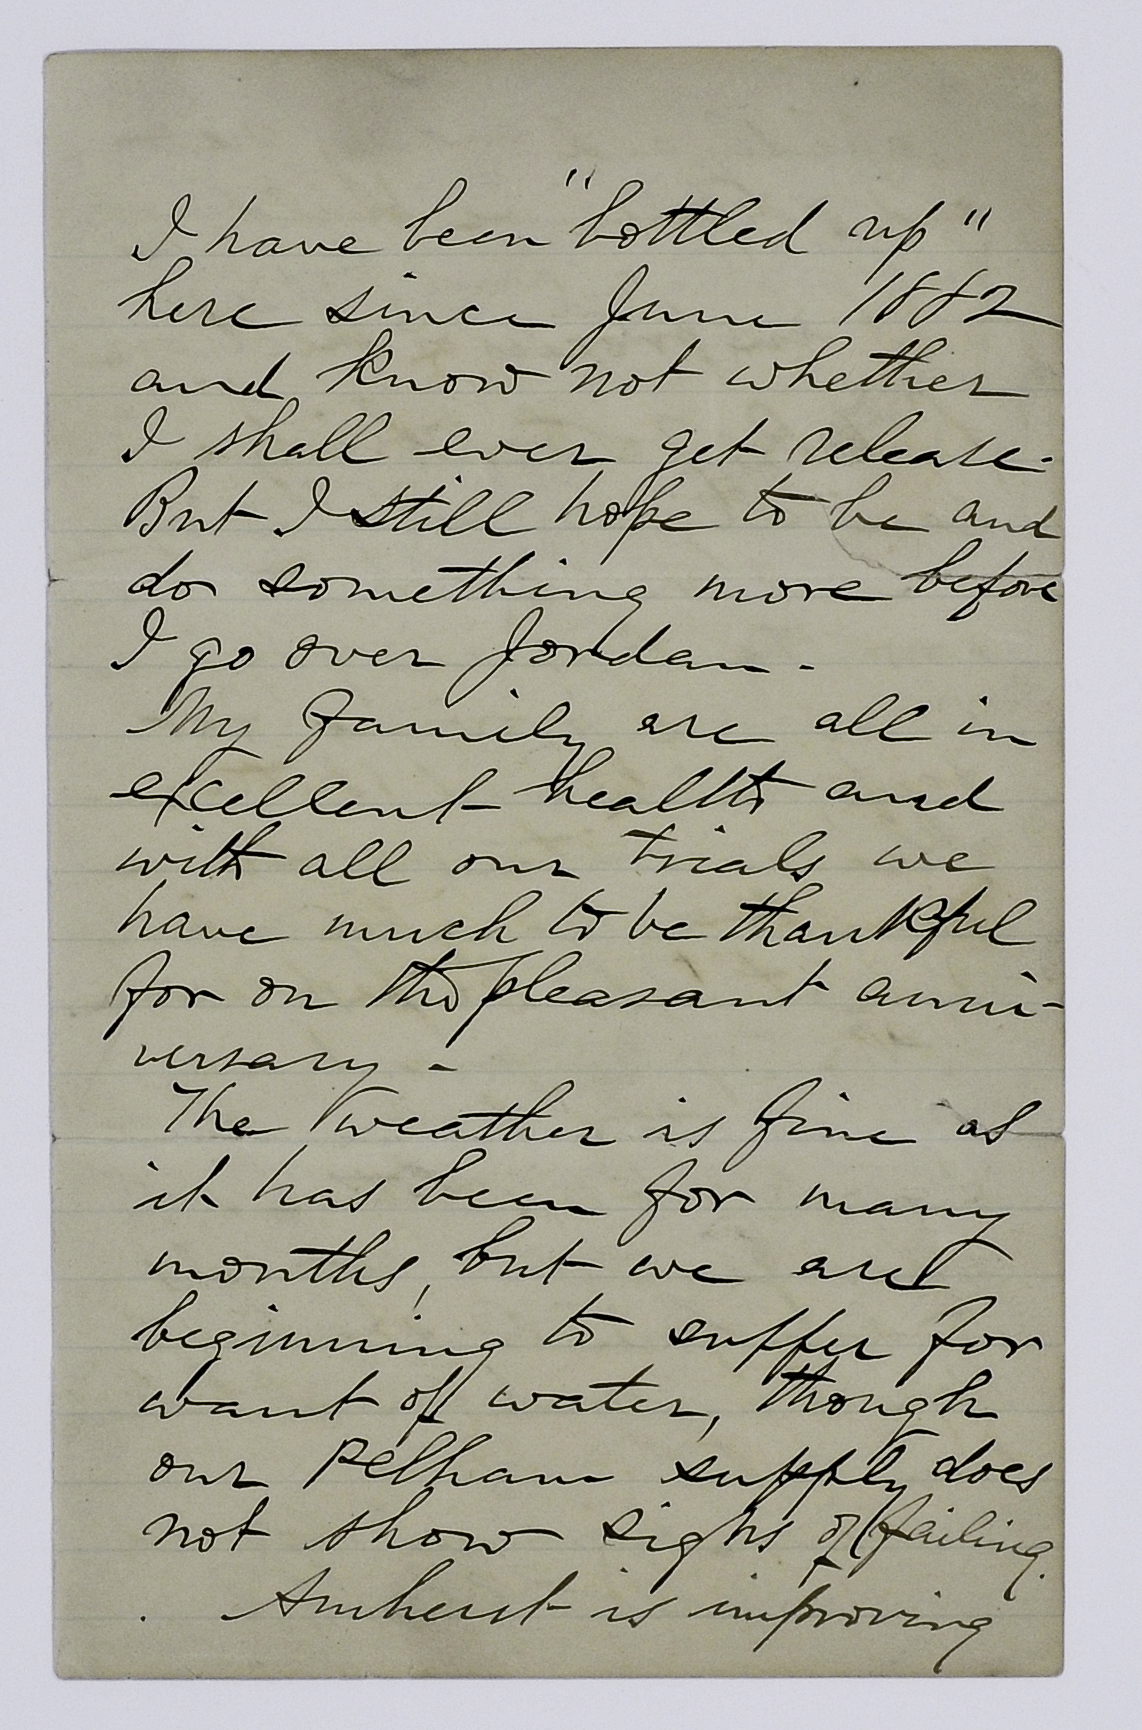 I have been "bottled up"
here since June 1882
and know not whether
I shall ever get release.
But I still hope to be and
do something more before
I go over Jordan.
My family are all in
excellent health and
with all our trials we
have much to be thankful
for on this pleasant anni-
versary -
The weather is fine as
it has been for many
months, but we are
beginning to suffer for
want of water, though
our Pelham supply does
not show signs of failing.
Amherst is improving